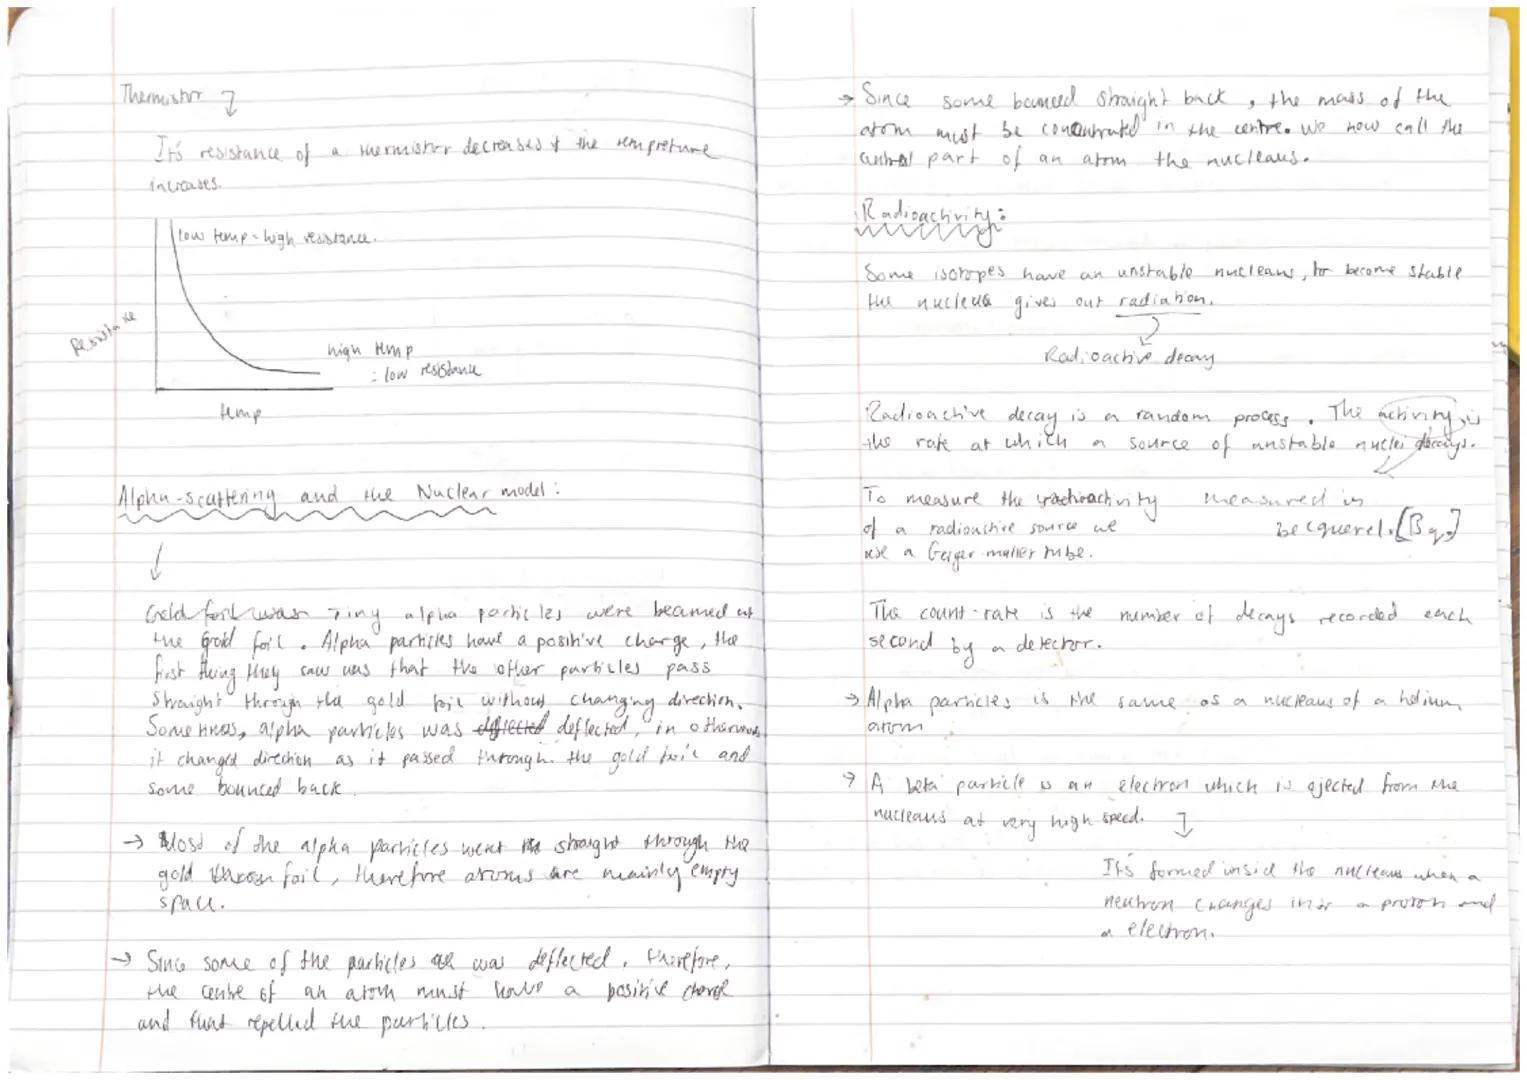 Thermistor
It's resistance of a thermistor decreases if the tempreture
increases.
low temp = high resistance.
Resistance
high temp
= low resistance
temp
Alpha-scattering and the Nuclear model:
Gold foil was Tiny alpha particles were beamed at
the gold foil. Alpha particles have a positive charge, the
first thing they saw was that the other particles pass
straight through the gold foil without changing direction.
Sometimes, alpha particles was deflected, in otherwords
it changed direction as it passed through the gold foil and
some bounced back.
→ Most of the alpha particles went straight through the
gold foil, therefore atoms are mainly empty
space.
→ Since some of the particles was deflected, therefore,
the centre of an atom must have a positive charge
and that repelled the particles.
→ Since some bounced straight back, the mass of the
atom must be concentrated in the centre. We now call the
central part of an atom the nucleaus.
Radioactivity:
Some isotopes have an unstable nucleaus, to become stable
the nucleus gives out radiation.
Radioactive decay
Radioactive decay is a random process. The activity is
the rate at which a source of unstable nuclei decays.
To measure the radioactivity
of a radioactive source we
use a Geiger-muller tube.
measured in
becquerel. [Bq]
The count-rate is the number of decays recorded each
second by a detector.
→ Alpha particles is the same as a nucleaus of a helium
atom
→ A beta particle is an electron which is ejected from the
nucleaus at very high speed.
It's formed inside the nucleaus when a
neutron changes into a proton and
a electron.